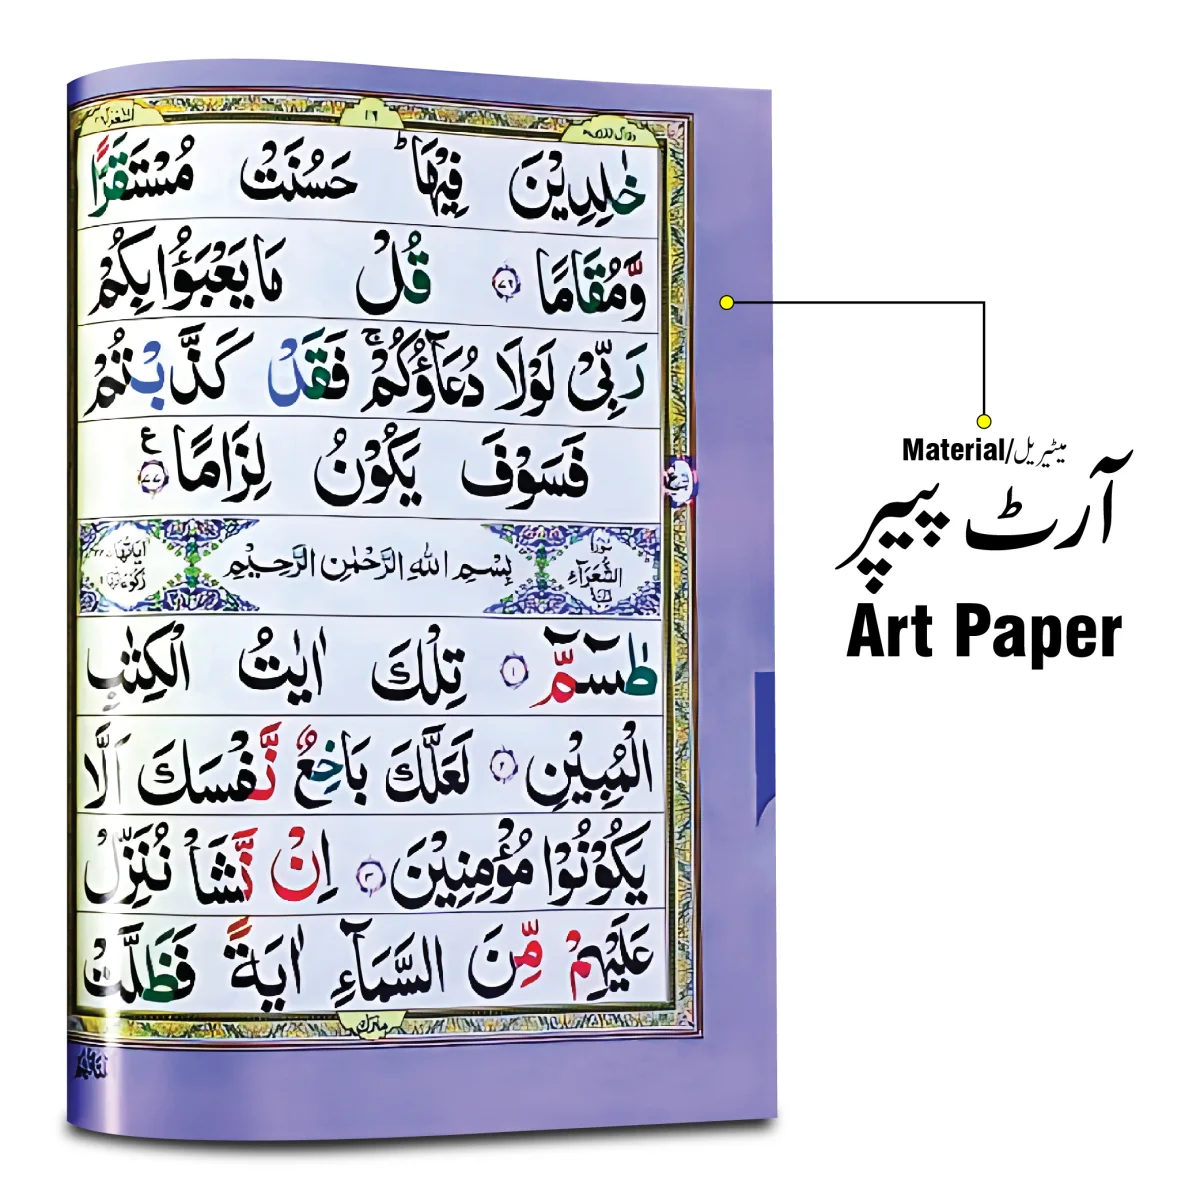 الشعرآء ٢٦
١٩
وقال الذین ١٩
خٰلِدِيْنَ فِيْهَا ؕ حَسُنَتْ مُسْتَقَرًّا
وَّمُقَامًا ٧٦ قُلْ مَا يَعْبَؤُا بِكُمْ
رَبِّيْ لَوْلَا دُعَآؤُكُمْ ۚ فَقَدْ كَذَّبْتُمْ
فَسَوْفَ يَكُوْنُ لِزَامًا ٧٧ ع
سُوْرَةُ الشُّعَرَآءِ بِسْمِ اللهِ الرَّحْمٰنِ الرَّحِيْمِ اٰيَاتُهَا ٢٢٧
طٰسٓمّٓ ١ تِلْكَ اٰيٰتُ الْكِتٰبِ
الْمُبِيْنِ ٢ لَعَلَّكَ بَاخِعٌ نَّفْسَكَ اَلَّا
يَكُوْنُوْا مُؤْمِنِيْنَ ٣ اِنْ نَّشَاْ نُنَزِّلْ
عَلَيْهِمْ مِّنَ السَّمَآءِ اٰيَةً فَظَلَّتْ
منزل
Material/میٹیریل
آرٹ پیپر
Art Paper